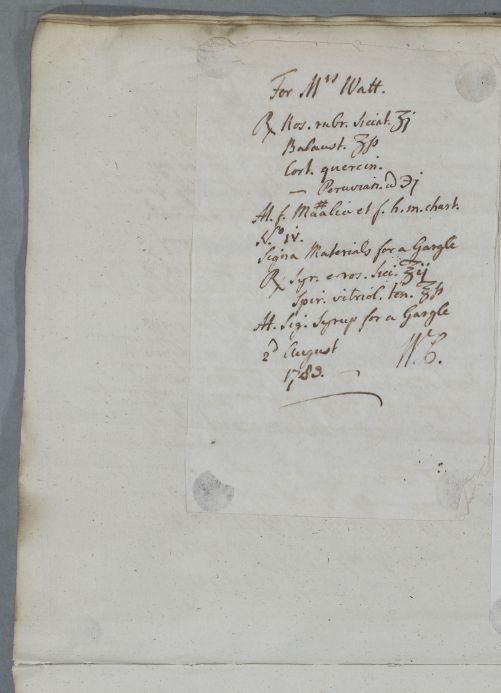 For Mrs Watt.
℞ Ros. rubr. siccat. ʒj
Balaust. ʒß
Cort. quercin.
— Peruvian. a ℈j
M. f. et f. h. m. chart.
No. iv.
Signa Materials for a Gargle
℞ Syr. e ros. sicc. ʒij
Spir. vitriol. ten. ʒß
M. Sig. Syrup for a Gargle
2d August
1783.
W. C.